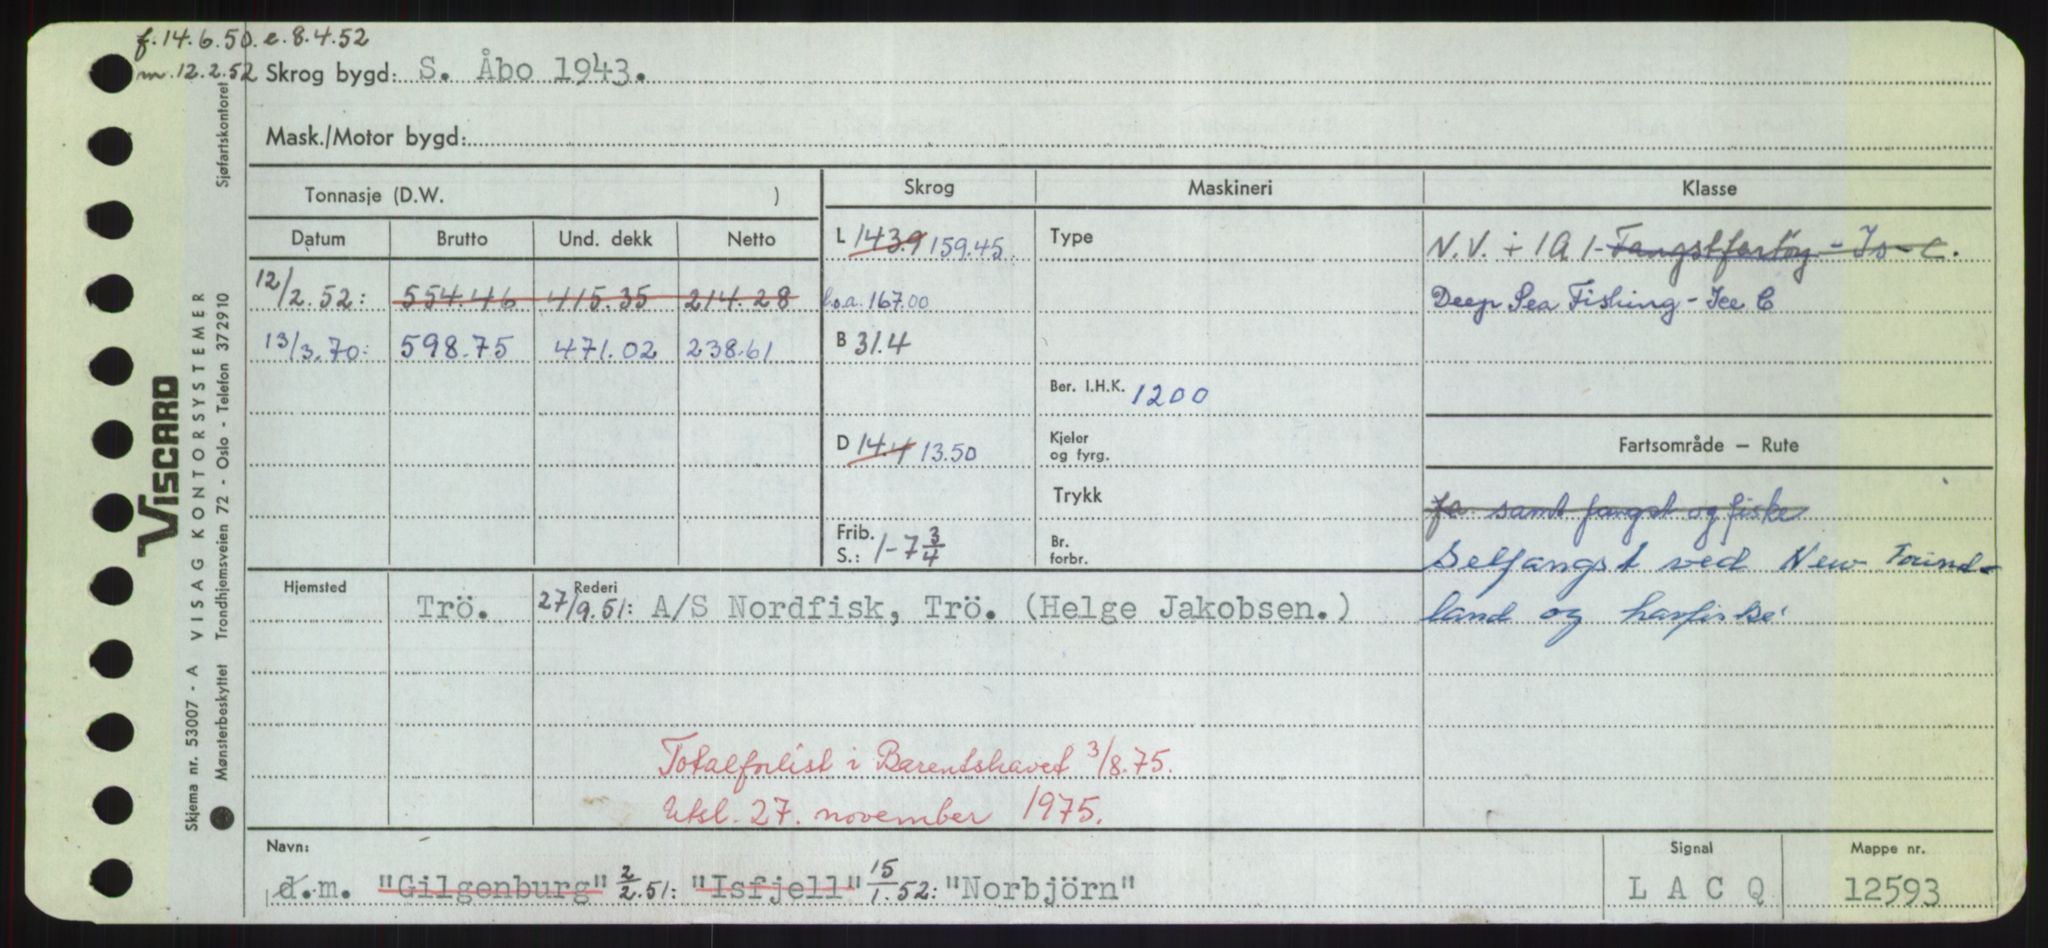 f. 14.6.50. e. 8.4.52
m. 12.2.52 Skrog bygd: S. Åbo 1943.
Mask./Motor bygd:
Tonnasje (D.W. )
Skrog
Maskineri
Klasse
Datum Brutto Und. dekk Netto
12/2.52: 554.46 415.35 214.28
13/3.70: 598.75 471.02 238.61
L 143.9 159.45
l.o.a. 167.00
B 31.4
D 14.4 13.50
Frib. S.: 1-7 3/4
Type
Ber. I.H.K. 1200
Kjeler
og fyrg.
Trykk
Br.
forbr.
N.V. + 1A1- Fangstfartøy - Is - C.
Deep Sea Fishing - Ice C
Fartsområde – Rute
fa samt fangst og fiske
Selfangst ved New Found-
land og havfiske
Hjemsted Rederi
Trö. 27/9.51: A/S Nordfisk, Trö. (Helge Jakobsen.)
Totalforlist i Barentshavet 3/8.75.
Utsl. 27. november 1975.
Navn: Signal Mappe nr.
d.m. "Gilgenburg" 2/2.51: "Isfjell" 15/1.52: "Norbjörn" L A C Q 12593
VISCARD
Skjema nr. 53007 - A VISAG KONTORSYSTEMER
Mønsterbeskyttet Trondhjemsveien 72 - Oslo - Telefon 372910 Sjøfartskontoret